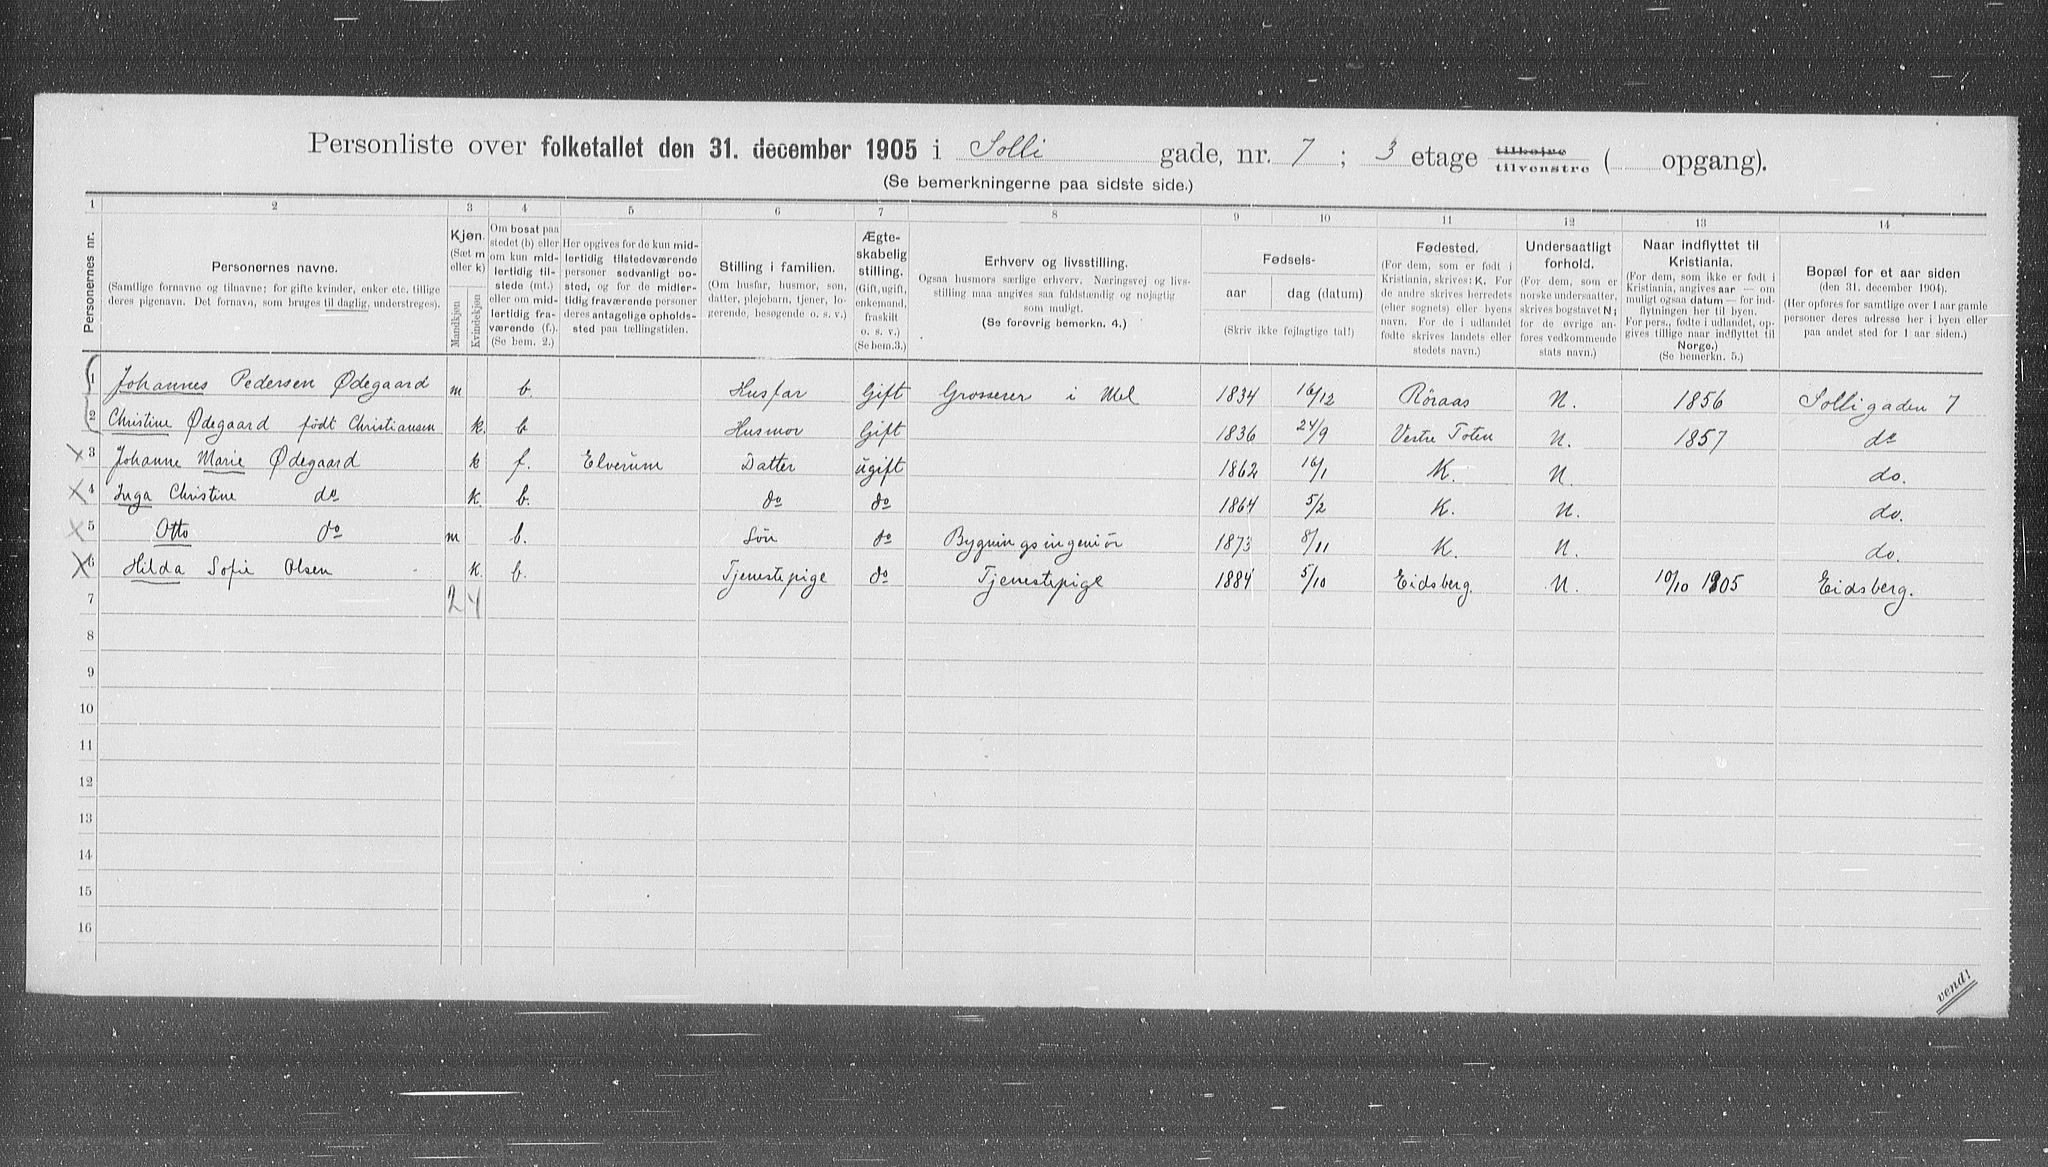 Personliste over folketallet den 31. december 1905 i Solli gade, nr. 7 ; 3 etage tilhøjre tilvenstre ( opgang).
(Se bemerkningerne paa sidste side.)
1 2 3 4 5 6 7 8 9 10 11 12 13 14
Personernes nr.
Personernes navne.
(Samtlige fornavne og tilnavne; for gifte kvinder, enker etc. tillige
deres pigenavn. Det fornavn, som bruges til daglig, understreges).
Kjøn.
(Sæt m
eller k)
Mandkjøn
Kvindekjøn
Om bosat paa
stedet (b) eller
om kun mid-
lertidig til-
stede (mt.)
eller om mid-
lertidig fra-
værende (f.).
(Se bem. 2.)
Her opgives for de kun mid-
lertidig tilstedeværende
personer sedvanligt bo-
sted, og for de midler-
tidig fraværende personer
deres antagelige opholds-
sted paa tællingstiden.
Stilling i familien.
(Om husfar, husmor, søn,
datter, plejebarn, tjener, lo-
gerende, besøgende o. s. v.)
Ægte-
skabelig
stilling.
(Gift, ugift,
enkemand,
fraskilt
o. s. v.)
(Se bem.3.)
Erhverv og livsstilling.
Ogsaa husmors særlige erhverv. Næringsvej og livs-
stilling maa angives saa fuldstændig og nøjagtig
som muligt.
(Se forøvrig bemerkn. 4.)
Fødsels-
aar dag (datum)
(Skriv ikke fejlagtige tal!)
Fødested.
(For dem, som er født i
Kristiania, skrives: K. For
de andre skrives herredets
(eller sognets) eller byens
navn. For de i udlandet
fødte skrives landets eller
stedets navn.)
Undersaatligt
forhold.
(For dem, som er
norske undersaatter,
skrives bogstavet N;
for de øvrige an-
føres vedkommende
stats navn.)
Naar indflyttet til
Kristiania.
(For dem, som ikke er født i
Kristiania, angives aar — om
muligt ogsaa datum — for ind-
flytningen her til byen.
For pers., fødte i udlandet, op-
gives tillige naar indflyttet til
Norge.)
(Se bemerkn. 5.)
Bopæl for et aar siden
(den 31. december 1904).
(Her opføres for samtlige over 1 aar gamle
personer deres adresse her i byen eller
paa andet sted for 1 aar siden.)
1 Johannes Pedersen Ødegaard m b Husfar Gift Grosserer i Mel 1834 16/12 Röraas N. 1856 Solligaden 7
2 Christine Ødegaard födt Christiansen k. b Husmor Gift 1836 24/9 Vestre Toten N. 1857 do
3 Johanne Marie Ødegaard k f. Elverum Datter ugift 1862 16/1 K. N. do.
4 Inga Christine do k. b. do do 1864 5/2 K. N. do.
5 Otto do m b. Søn do Bygningsingeniör 1873 8/11 K. N. do.
6 Hilda Sofie Olsen k. b. Tjenestepige do Tjenestepige 1884 5/10 Eidsberg. N. 10/10 1905 Eidsberg.
7 2 4
8
9
10
11
12
13
14
15
16
vend!